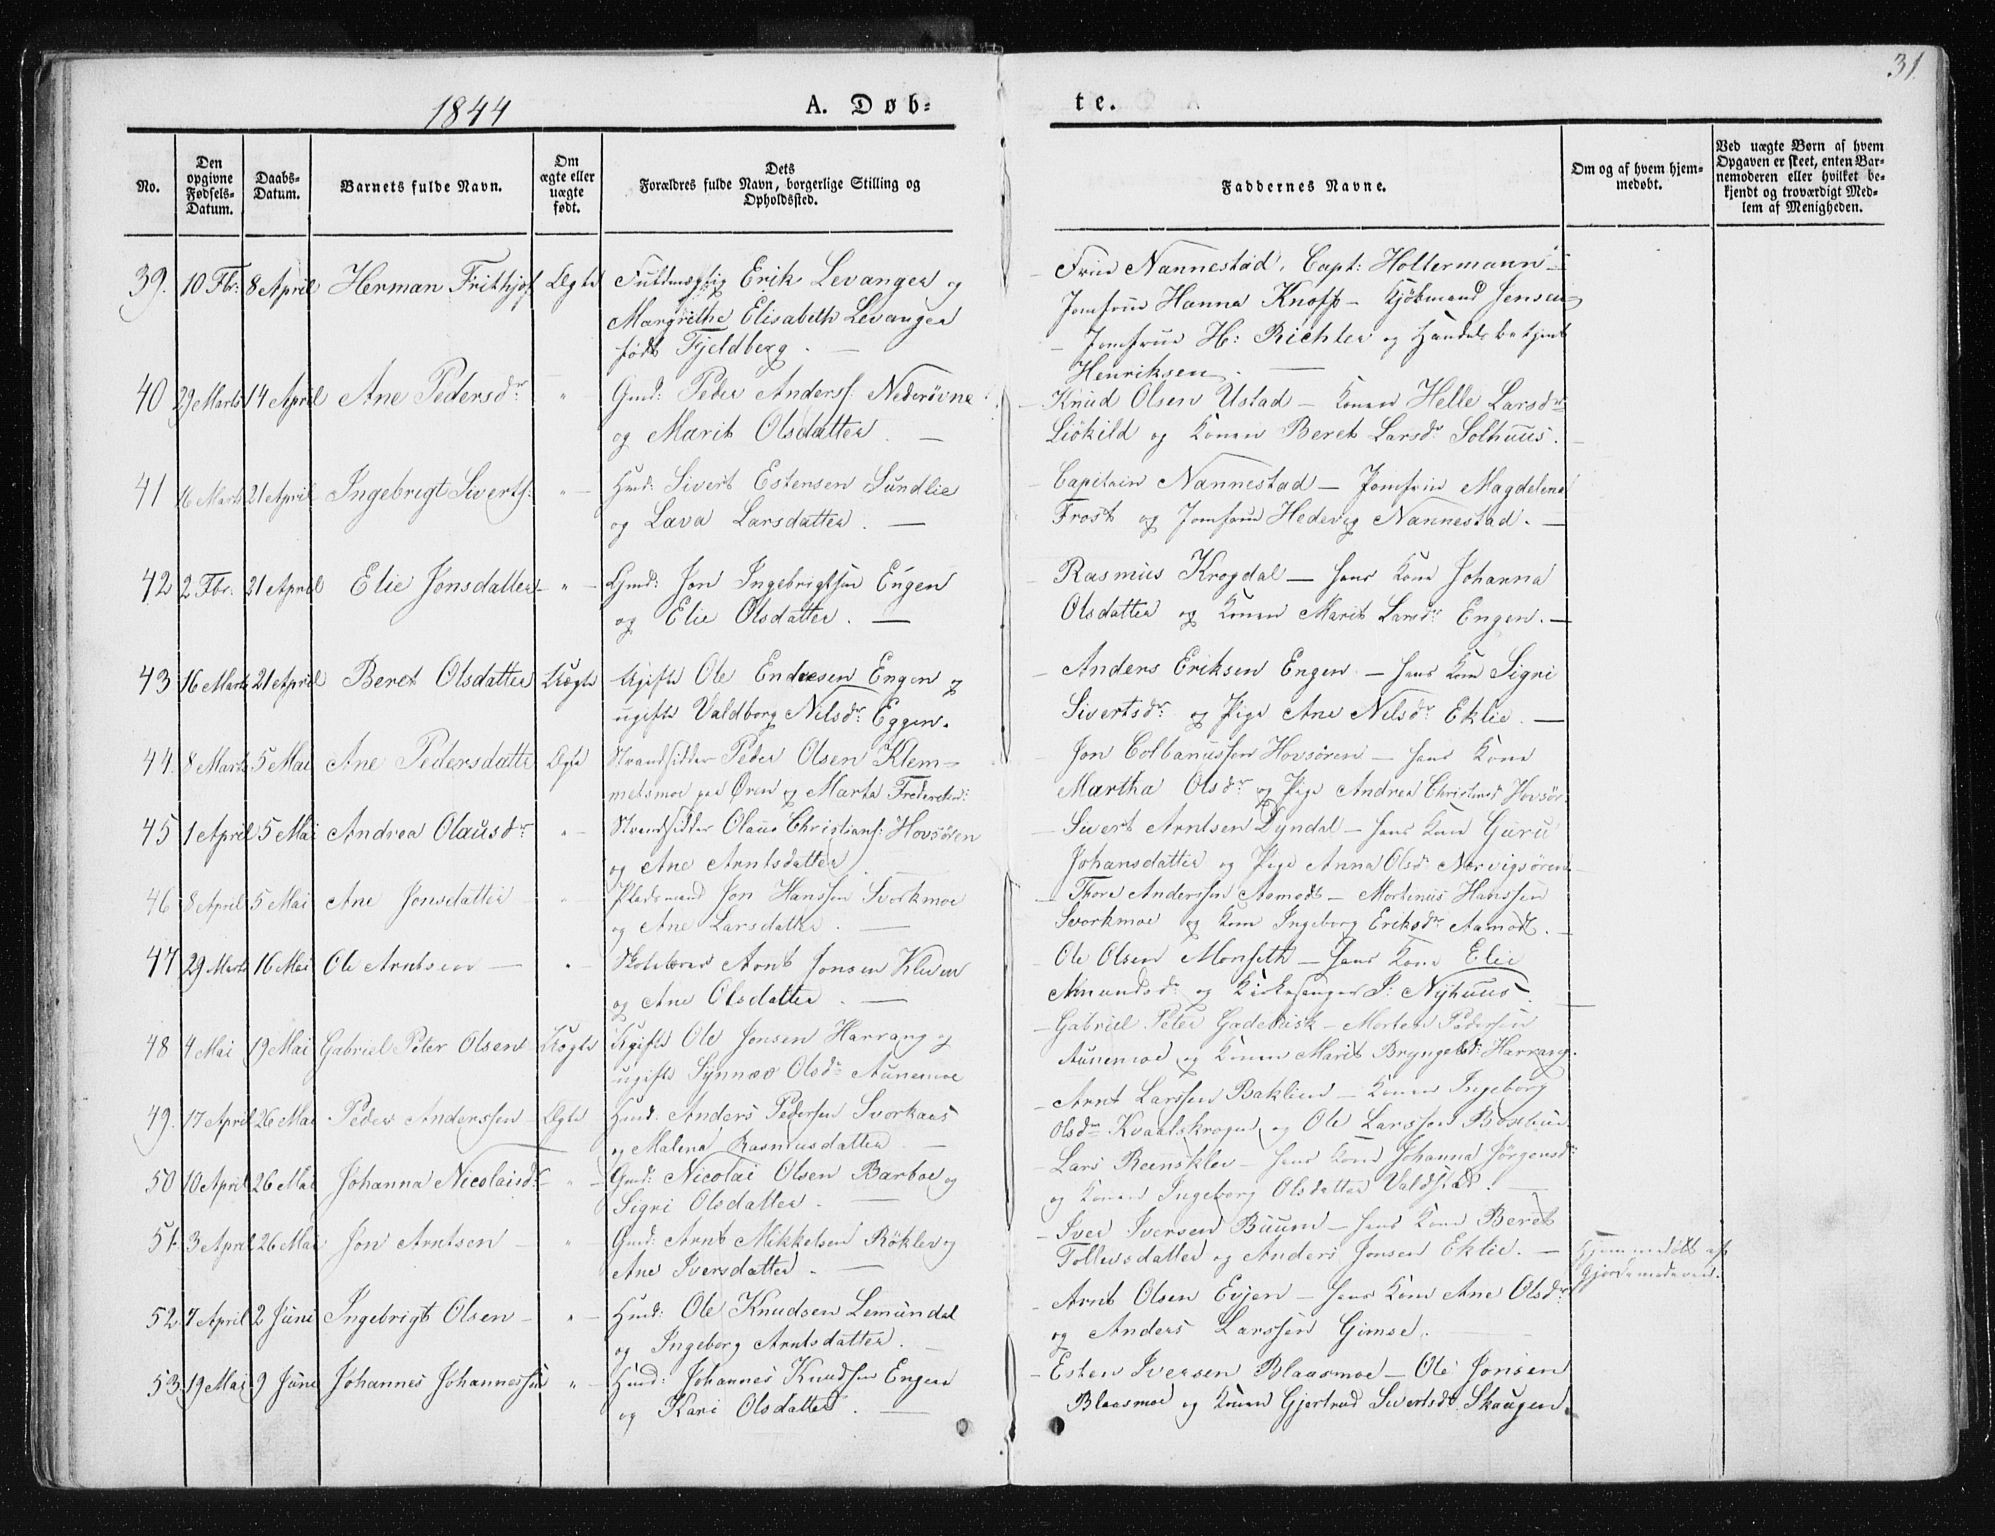 31.
1844
A. Døb-
te.
No.
Den opgivne Fødsels-Datum.
Daabs-Datum.
Barnets fulde Navn.
Om ægte eller uægte født.
Dets Forældres fulde Navn, borgerlige Stilling og Opholdssted.
Faddernes Navne.
Om og af hvem hjemmedøbt.
Ved uægte Børn af hvem Opgaven er skeet, enten Barnemoderen eller hvilket bekjendt og troværdigt Medlem af Menigheden.
39. 10 Fbr: 8 April Herman Frithjof Ægte Fuldmægtig Erik Levanger og
Margrethe Elisabeth Levanger
født Fjeldberg. —
Frue Nannestad, Capt: Holtermann
Jomfrue Hanna Knoff — Kjøbmand Jensen
— Jomfrue H: Richter og Handelsbetjent
Henriksen. —
40 29 Marts 14 April Ane Pedersdr " Gmd: Peder Anders: Nederøvne
og Marit Olsdatter. —
— Knud Olsen Ustad — Konen Helle Larsdr
Liökild og Konen Beret Larsdr Solhuus.
41 16 Marts 21 April Ingebrigt Siverts: " Hmd: Sivert Estensen Sundlie
og Lava Larsdatter. —
— Capitain Nannestad — Jomfrue Magdelena
Frost og Jomfrue Hedevig Nannestad. —
42 2 Fbr: 21 April Elie Jonsdatter " Hmd: Jon Ingebrigtsen Engen
og Elie Olsdatter. —
Rasmus Krogdal — hans Kone Johanna
Olsdatter og Konen Marit Larsdr Engen. —
43 16 Marts 21 April Beret Olsdatter Uægte Ugifte Ole Endresen Engen og
ugifte Valdborg Nilsdr Eggen.
— Anders Eriksen Engen — hans Kone Sigri
Sivertsdr og Pige Ane Nilsdr Eklie. —
44. 8 Marts 5 Mai Ane Pedersdatter Ægte Strandsidder Peder Olsen Klem-
metsmoe paa Øren og Marta Frederiksd:
Jon Colbanussen Hovsören — hans Kone
Martha Olsdr og Pige Andrea Christensd Hovsör
45 1 April 5 Mai Andrea Olausdr " Strandsidder Olaus Christians: Hovsören
og Ane Arntsdatter
— Sivert Arntsen Lyndal — hans Kone Guru
Johansdatter og Pige Anna Olsd Narvigsören
46 8 April 5 Mai Ane Jonsdatter " Pladsmand Jon Hanssen Svorkmoe
og Ane Larsdatter. —
— Thore Anderssen Aamodt — Mortinus Hanssen
Svorkmoe og Kone Ingeborg Eriksdr Aamodt. —
47 29 Marts 16 Mai Ole Arntsen — " Skolelærer Arnt Jonsen Kleven
og Ane Olsdatter. —
Ole Olsen Monseth — hans Kone Elie
Amundsdr og Kirkesanger P: Nyhuus
48 4 Mai 19 Mai Gabriel Peter Olsen Uægte Ugifte Ole Jonsen Harrang og
ugifte Synnæv Olsdr Aunemoe
— Gabriel Peter — Morten Pedersen
Aunemoe og Konen Marit Bryngelsdr Harrang.
49. 17 April 26 Mai Peder Anderssen Ægte Hmd: Anders Pedersen Svorkaas
og Malena Rasmusdatter —
— Arnt Larssen Baklien — Konen Ingeborg
Olsdr Kvaalskrogen og Ole Larssen
50 10 April 26 Mai Johanna Nicolaisdr " Gmd: Nicolai Olsen Barboe og
Sigri Olsdatter. —
— Lars Reensklev — hans Kone Johanna Jörgensdr
og Konen Ingeborg Olsdatter Valdstad. —
51. 3 April 26 Mai Jon Arntsen — " Gmd: Arnt Mikkelsen Röklev og
Ane Iversdatter. —
— Iver Iversen Buum — hans Kone Beret
Tollevsdatter og Anders Jonsen Eklie. —
Hjemmedöbt af
Gjordemoderen.
52 7 April 2 Juni Ingebrigt Olsen — " Hmd: Ole Knudsen Lemundal
og Ingeborg Arntsdatter. —
— Arnt Olsen Evjen — hans Kone Ane Olsdr
og Anders Larssen Gimse.
53 19 Mai 9 Juni Johannes Johannessen " Hmd: Johannes Knudsen Engen
og Kari Olsdatter. —
— Esten Iversen Blaasmoe — Ole Jonsen
Blaasmoe og Konen Gjertrud Sivertsdr Skaugen.